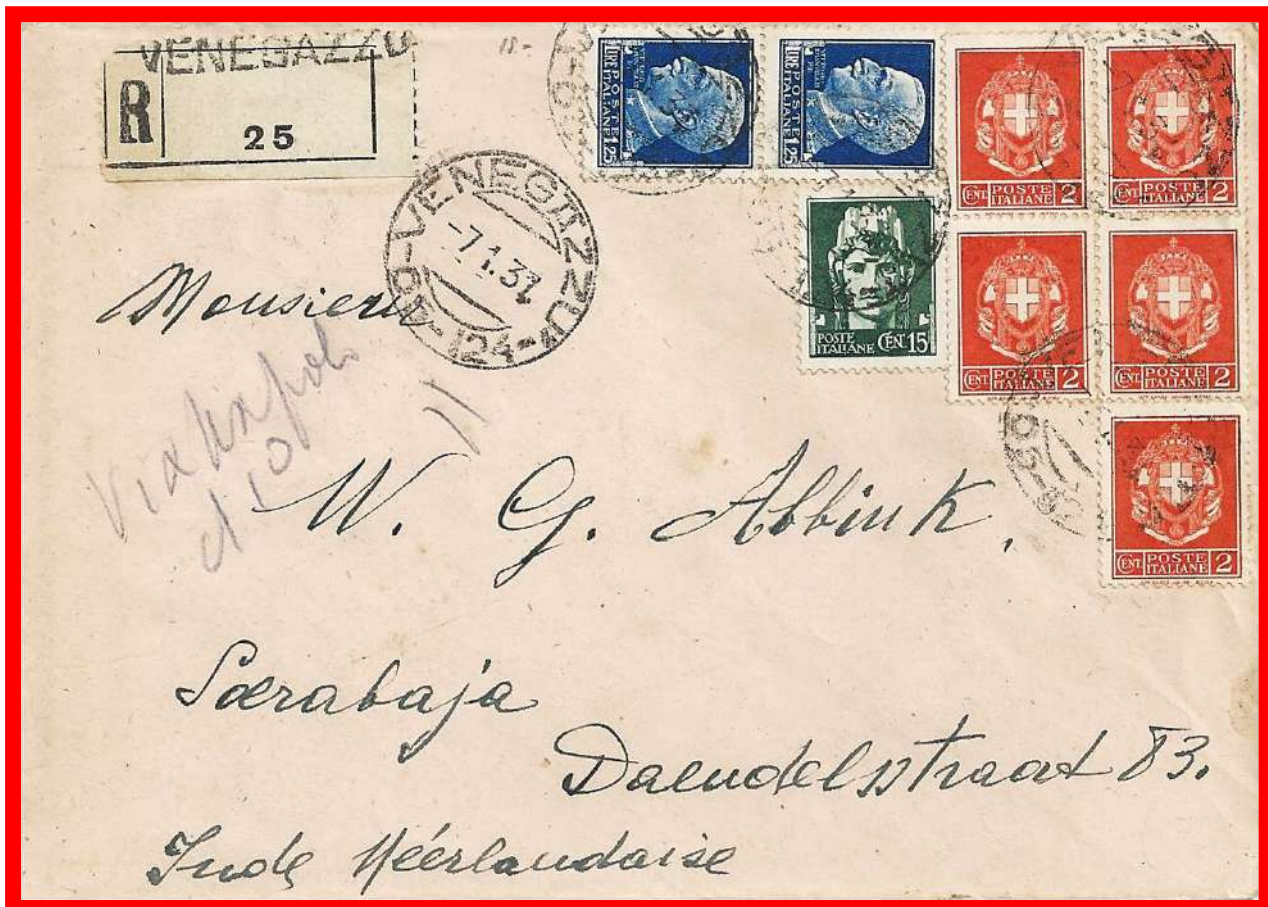 VENEGAZZU
R
25
LIRE POSTE ITALIANE 1,25
LIRE POSTE ITALIANE 1,25
POSTE ITALIANE CENT 15
CENT POSTE ITALIANE 2
CENT POSTE ITALIANE 2
CENT POSTE ITALIANE 2
CENT POSTE ITALIANE 2
CENT POSTE ITALIANE 2
VENEGAZZU
-7.1.37
Monsieur
Via Napoli
W. G. Abbink,
Sœrabaja
Daendelsstraat 83.
Inde Néérlandaise